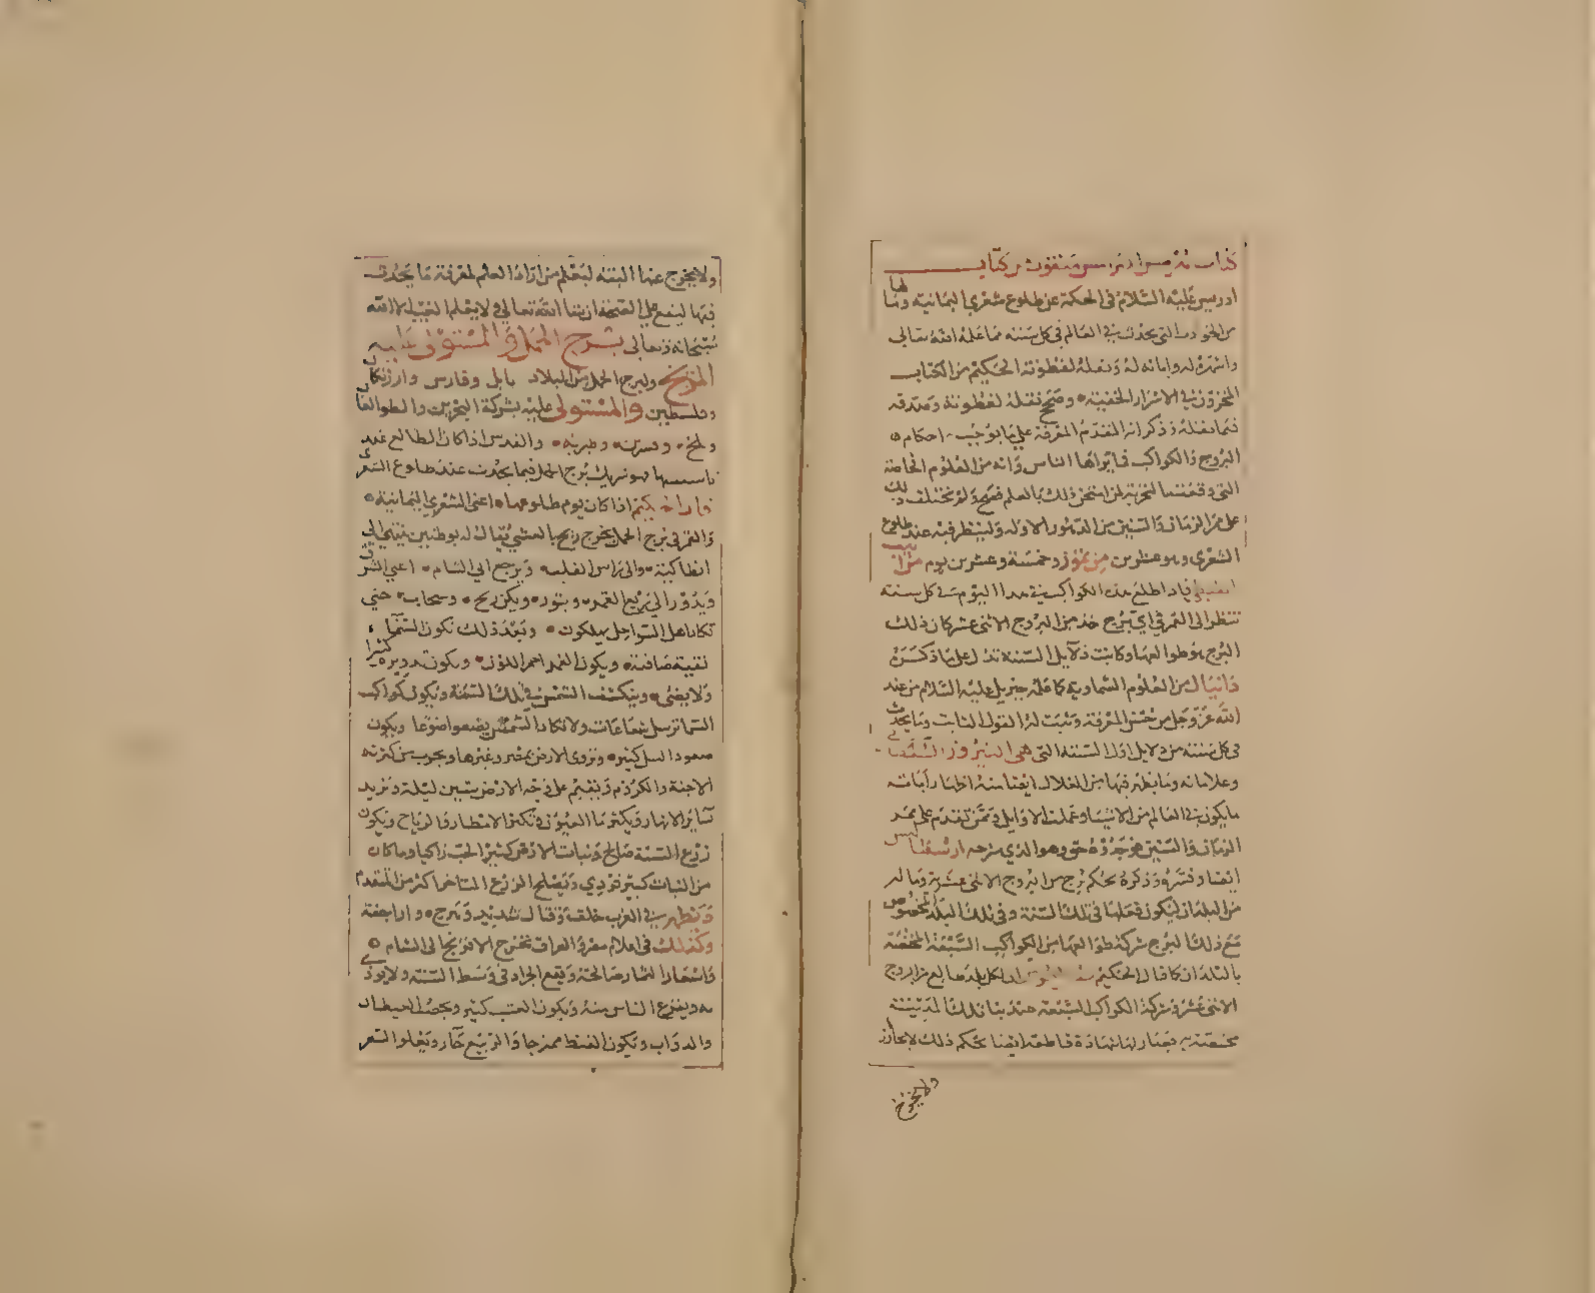 كتاب هرمس الهرامس منقوت من كتاب
ادريس عليه السلام في الحكمة عن طلوع شعري اليمانية وما لها
من الحوادث التي يحدث في العالم في كل سنة مما علمه الله تعالى
واشهره له وابانه له ونقله لفطونة الحكيم من الكتاب
المخزون في الاسرار الخفية وصح نقله لفطونة وصدقه
فيما نقله وذكر انه المقدم المعرفة على ما يوجب احكام
البروج والكواكب فما يراها الناس وانه من العلوم الخاصة
التي وقعت التجربة لمن امتحن ذلك بالعلم فصح ولم تختلف ذلك
على ممر الزمان والسنين من الدهور الاولة ولينظر فيه عند طلوع
الشعري وهو عشرين من تموز وخمسة وعشرين يوم من ابيب
القبطي فاذا طلع هذه الكواكب في هذا اليوم في كل سنة
تنظر الى القمر في اي برج هو من البروج الاثنى عشر كان ذلك
البرج هو طوالعها وكانت دلايل السنة تدل على ما ذكره
دانيال من العلوم السماوية كما علمه جبريل عليه السلام من عند
الله عز وجل من حسن المعرفة وثبت له القول الثابت وما يحدث
في كل سنة من دلايل اول السنة التي هي النيروز
وعلاماته وما يظهر فيها من الغلال ايضا منه اظهار اياته
ما يكون في العالم من الاشيا وعملت الاوايل ومن تقدم على ممر
الزمان والسنين هو جدوه حق وهو الذي شرحه ارسقناليس
ايضا وفسره وذكره بحكم برج من البروج الاثنى عشرية وما له
من البلدان ليكون فعلها في تلك السنة وفي تلك البلد المخصوص
مع ذلك البرج شركة طوالعها من الكواكب السبعة المختصة
بالبلدان كما قال الحكيم ان لكل بلد طالع من البروج
الاثنى عشر وشركة الكواكب السبعة عند بنا تلك المدينة
مختصة به فصار لها شهادة قاطعة ايضا بحكم ذلك لا يجاوز
ولا يخرج
ولا يخرج عنها البتة ليعلم من اراد العلم لمعرفة ما يحدث
فيها ليقع على الصحة ان شا الله تعالى ولا يعلم الغيب الا الله
سبحانه وتعالى برج الحمل والمستولى عليه
المريخ ولبرج الحمل من البلاد بابل وفارس
وفلسطين والمستولى عليه بشركة البحرين
وبلخ وطبرية والقدس اذا كان الطالع عند
تاسيسها هو شريك برج الحمل فيما يحدث عند طلوع الشعري
قال الحكيم اذا كان يوم طلوعها اعني الشعري اليمانية
والقمر في برج الحمل يخرج ريح بالعشي يقال له ينتهي الى
انطاكية والى راس القلعة ويرجع الى الشام اعني الشرق
ويدور الى تربيع القمر ويكن ريح وسحاب حتى
تكاد اهل السواحل يهلكون وبعد ذلك تكون السما
نقية صافية ويكون القمر احمر اللون ويكون تدويره كثيرا
ولا يضي وينكسف الشمس في تلك السنة ويكون كواكب
السما ترسل شعاعات ولا تكاد الشمس ويكون
صعود النيل كثير وتروى الارض بمصر وغيرها
الاجنة والكروم ويقيم على وجه الارض ستين ليلة وتزيد
ساير الانهار ويكثر ما العيون وتكثر الامطار والرياح ويكون
زرع السنة صالح ونبات الارض كثير الحب زاكيا وما كان
من النبات كبير تودي ويصلح الزرع المتاخر اكثر من المتقدم
ويظهر في العرب خلف وقتال شديد وهرج واراجفة
وكذلك في اعلام مصر والعراق تخرج الافرنج الى الشام
واسعار الثمار صالحة ويقع الجراد في وسط السنة ولا يوذي
ويفزع الناس منه ويكون العشب كثير
والدواب ويكون القيظ ممزجا والربيع حار ويغلوا السعر